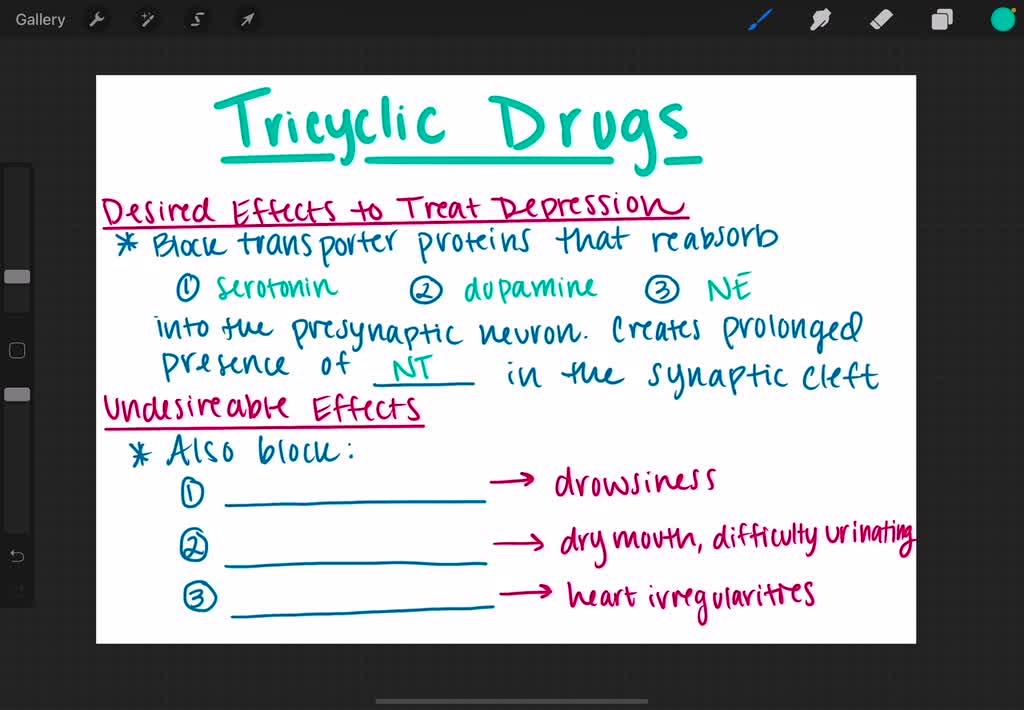 Gallery
Tricyclic Drugs
Desired Effects to Treat Depression
* Block transporter proteins that reabsorb
① serotonin ② dopamine ③ NE
into the presynaptic neuron. Creates prolonged
presence of NT in the synaptic cleft
Undesireable Effects
* Also block:
① → drowsiness
② → dry mouth, difficulty urinating
③ → heart irregularities